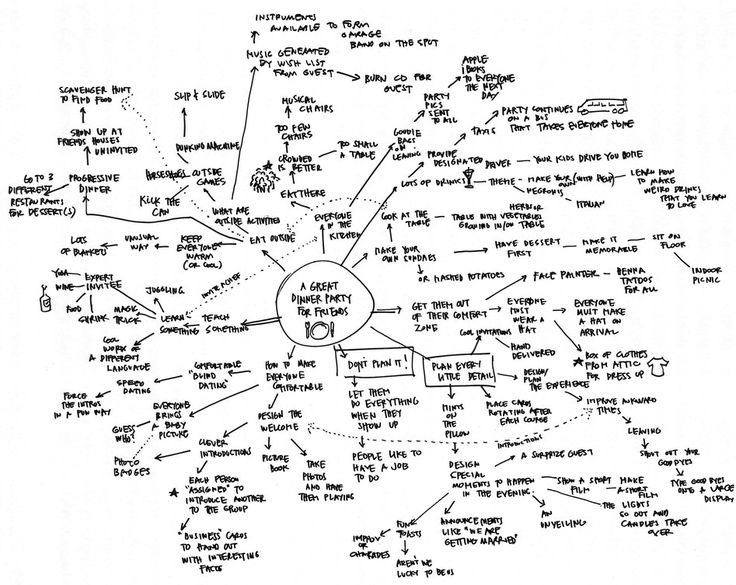 A GREAT
DINNER PARTY
FOR FRIENDS
INSTRUMENTS
AVAILABLE TO FORM
GARAGE
BAND ON THE SPOT
MUSIC GENERATED
BY WISH LIST
FROM GUEST
BURN CD FOR
GUEST
SCAVENGER HUNT
TO FIND FOOD
SHOW UP AT
FRIENDS HOUSES
UNINVITED
GO TO 3
DIFFERENT
RESTAURANTS
FOR DESSERT(S)
PROGRESSIVE
DINNER
SLIP & SLIDE
DUNKING MACHINE
HORSESHOES
OUTSIDE
GAMES
KICK THE
CAN
WHAT ARE
OUTSIDE ACTIVITIES
EAT OUTSIDE
KEEP
EVERYONE
WARM
(OR COOL)
UNUSUAL
WAY
LOTS
OF BLANKETS
MUSICAL
CHAIRS
TOO FEW
CHAIRS
CROWDED
IS BETTER
TOO SMALL
A TABLE
EAT HERE
EVERYONE
IN THE
KITCHEN
GOODIE
BAGS
ON
LEAVING
PARTY
PICS
SENT
TO ALL
APPLE
iBOOKS
TO EVERYONE
THE NEXT
DAY
PROVIDE
DESIGNATED DRIVER
YOUR KIDS DRIVE YOU HOME
TAXIS
PARTY CONTINUES
ON A BUS
THAT TAKES EVERYONE HOME
LOTS OF DRINKS
THEME
MAKE YOUR (WITH HELP)
OWN
NEGRONIS
ITALIAN
LEARN HOW
TO MAKE
WEIRD DRINKS
THAT YOU LEARN
TO LOVE
LOOK AT THE
TABLE
HERB OR
TABLE WITH VEGETABLES
GROWING IN/ON TABLE
MAKE YOUR
OWN SUNDAES
OR MASHED POTATOES
HAVE DESSERT
FIRST
MAKE IT
MEMORABLE
SIT ON
FLOOR
INDOOR
PICNIC
GET THEM OUT
OF THEIR COMFORT
ZONE
FACE PAINTER
HENNA
TATOOS
FOR ALL
EVERYONE
MUST
WEAR A
HAT
EVERYONE
MUST
MAKE A
HAT ON
ARRIVAL
BOX OF CLOTHES
FROM ATTIC
FOR DRESS UP
PLAN EVERY
LITTLE DETAIL
COOL INVITATIONS
HAND
DELIVERED
DESIGN/
PLAN
THE EXPERIENCE
IMPROVE AWKWARD
TIMES
LEAVING
SHOUT OUT YOUR
GOODBYES
TYPE GOODBYES
ONTO A LARGE
DISPLAY
PLACE CARDS
ROTATING AFTER
EACH COURSE
MINTS
ON
THE
PILLOW
INTRODUCTIONS
DESIGN
SPECIAL
MOMENTS TO HAPPEN
IN THE EVENING
A SURPRIZE GUEST
SHOW A SHORT
FILM
MAKE
A SHORT
FILM
THE LIGHTS
GO OUT AND
CANDLES TAKE
OVER
AN
UNVEILING
ANNOUNCEMENTS
LIKE "WE ARE
GETTING MARRIED"
FUN
TOASTS
IMPROV
OR
CHARADES
AREN'T WE
LUCKY TO BE US
DON'T PLAN IT!
LET THEM
DO EVERYTHING
WHEN THEY
SHOW UP
PEOPLE LIKE TO
HAVE A JOB
TO DO
HOW TO MAKE
EVERYONE
COMFORTABLE
COMFORTABLE
"BLIND
DATING"
SPEED
DATING
FORCE
THE INTROS
IN A FUN WAY
DESIGN THE
WELCOME
PICTURE
BOOK
TAKE
PHOTOS
AND HAVE
THEM PLAYING
EVERYONE
BRINGS
A BABY
PICTURE
GUESS
WHO?
PHOTO
BADGES
CLEVER
INTRODUCTIONS
EACH PERSON
"ASSIGNED" TO
INTRODUCE ANOTHER
TO THE GROUP
"BUSINESS" CARDS
TO HAND OUT
WITH INTERESTING
FACTS
TEACH
SOMETHING
LEARN
SOMETHING
INVITE A CHEF
JUGGLING
EXPERT
INVITEE
YOGA
WINE
FOOD
SHRINK
MAGIC
TRICK
COOL
WORDS OF
A DIFFERENT
LANGUAGE